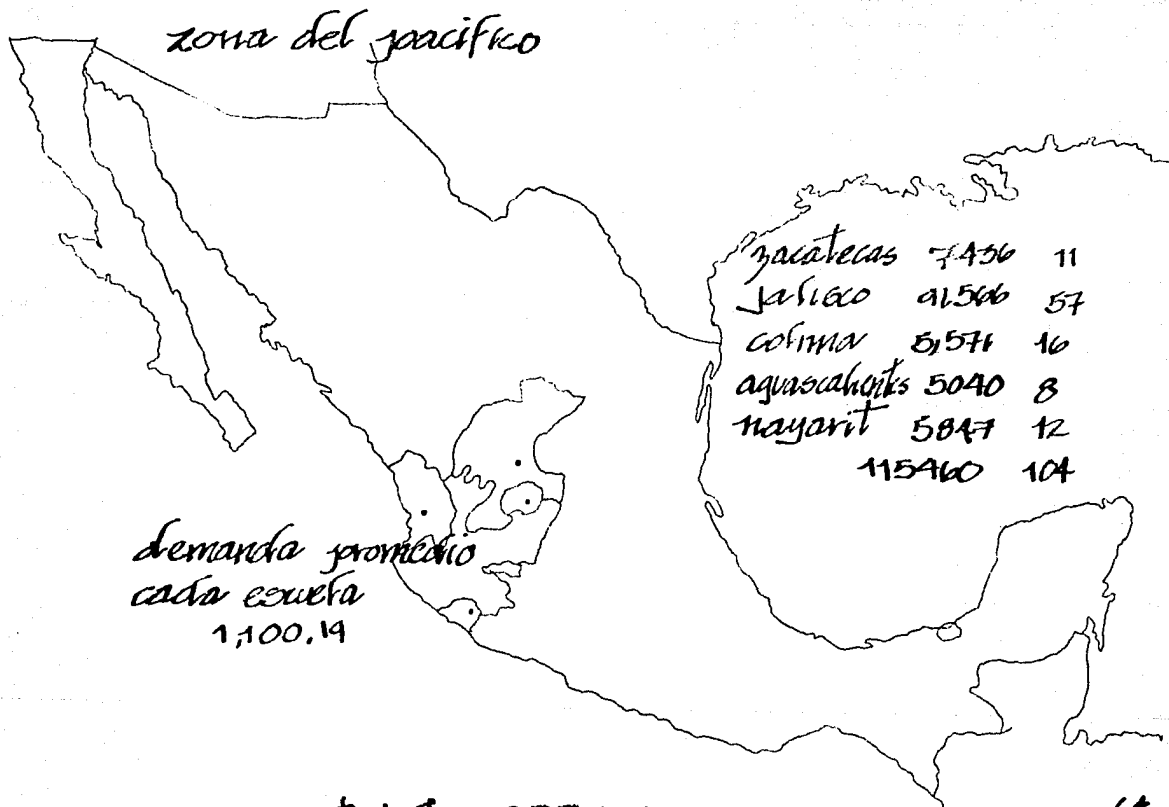 zona del pacifico
zacatecas 7436 11
jalisco 91566 57
colima 5,571 16
aguascalientes 5040 8
nayarit 5847 12
115460 104
demanda promedio
cada escuela
1,100.19